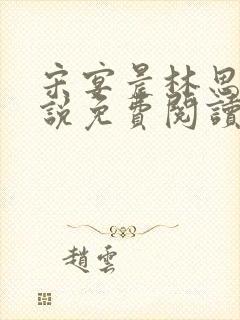 宋宴景林思
說免費閱讀
趙雲